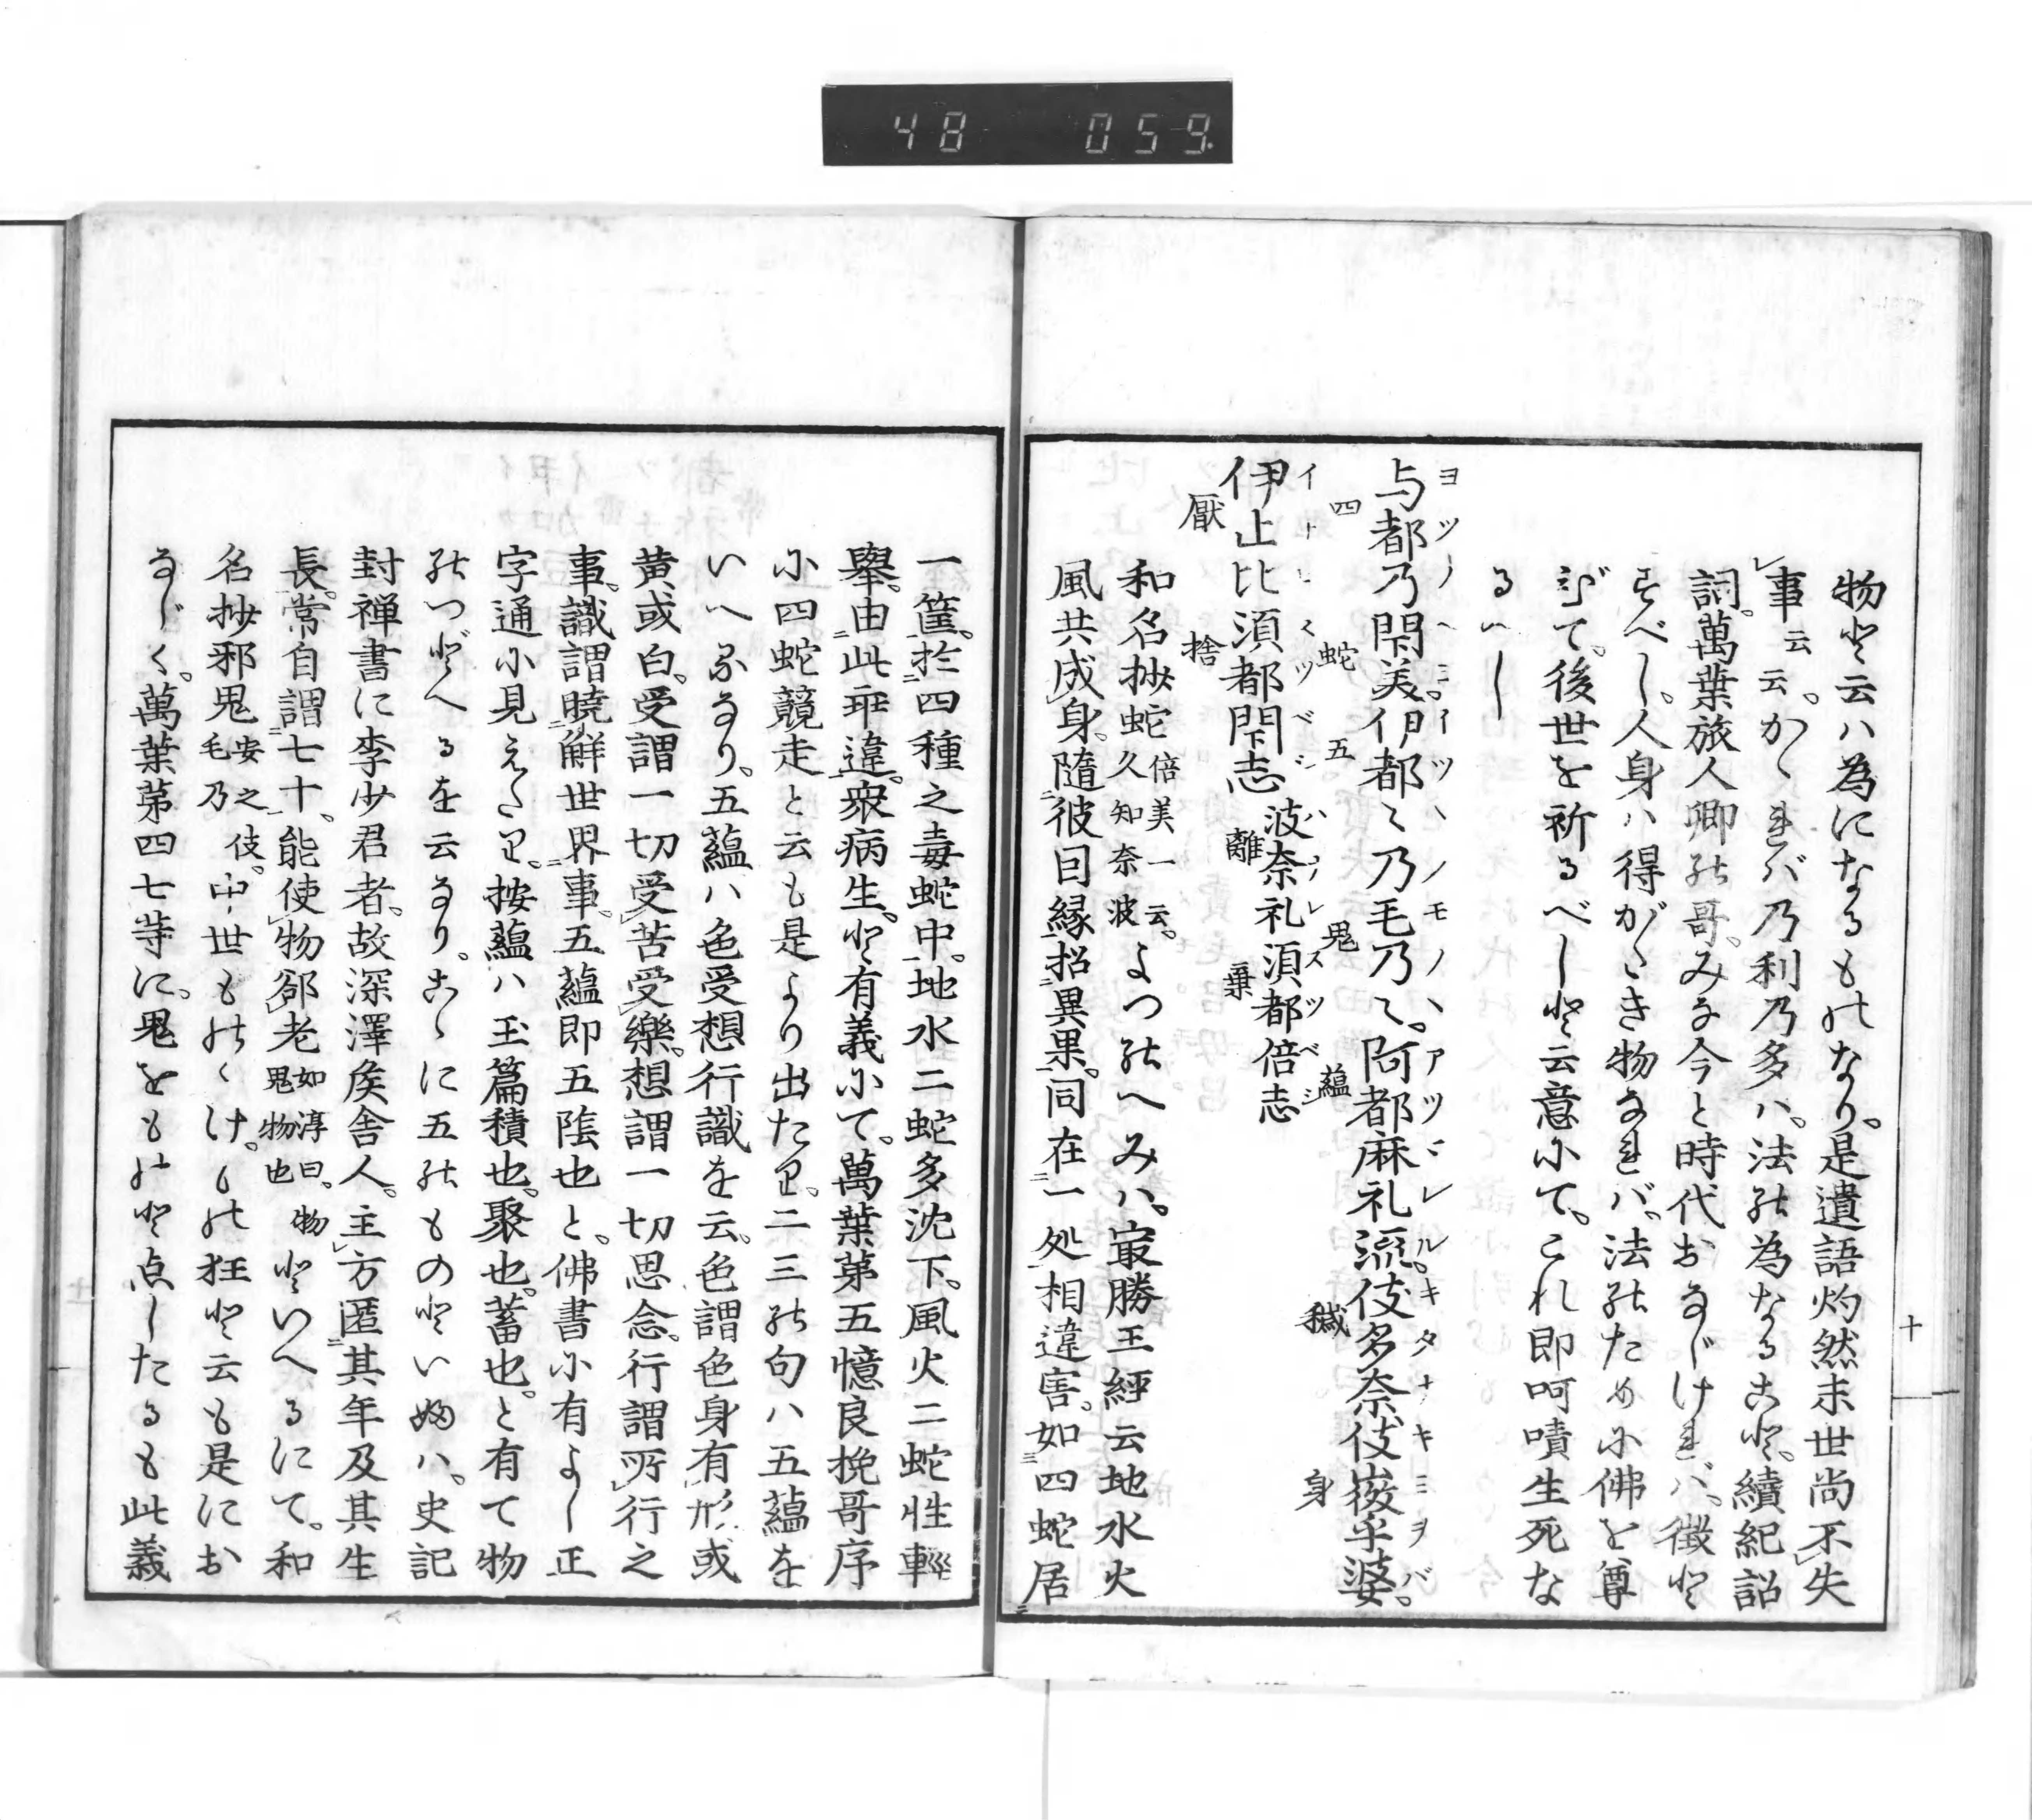 48 059
物と云ハ為になるものなり。是遺語灼然末世尚不失
事云云。かゝれバ乃利乃多ハ。法の為なること。續紀詔
詞。萬葉旅人卿の哥。みな今と時代おなじけれバ。徴と
すべし。人身ハ得がゝき物なれバ。法のために佛を尊
びて。後世を祈るべしと云意にて。これ即呵嘖生死な
るべし
与都乃閇美伊都々乃毛乃々。阿都麻礼流伎多奈伎
ヨツノヘミ。イツヽノモノヽアツマレル。キタナキミヲバ。
四 蛇 五 鬼 蘊 穢 身
伊止比須都閇志波奈礼須都倍志
イトヒスツベシハナレスツベシ
厭 捨 離 棄
和名抄蛇倍美一云。久知奈波よつのへみハ。最勝王經云地水火
風共成身。隨彼因縁招異果。同在一処相違害。如四蛇居
十
一篋。於四種之毒蛇中。地水二蛇多沈下。風火二蛇性輕
舉。由此乖違。衆病生。と有義にて。萬葉第五憶良挽哥序
に四蛇競走と云も是より出たり。二三の句ハ五蘊を
いへるなり。五蘊ハ色受想行識を云。色謂色身有形或
黄或白。受謂一切受苦受樂。想謂一切思念。行謂所行之
事。識謂曉解世界事。五蘊即五陰也と。佛書に有よし正
字通に見えたり。按蘊ハ玉篇積也。聚也。蓄也。と有て物
のつどへるを云なり。こゝに五のものといふハ。史記
封禅書に李少君者。故深澤矦舎人。主方匿其年及其生
長。常自謂七十。能使物郤老如淳曰。物鬼物也といへるにて。和
名抄邪鬼安之伎毛乃。中世ものゝけ。もの狂と云も是にお
なじく。萬葉第四七等に。鬼をものと点したるも此義